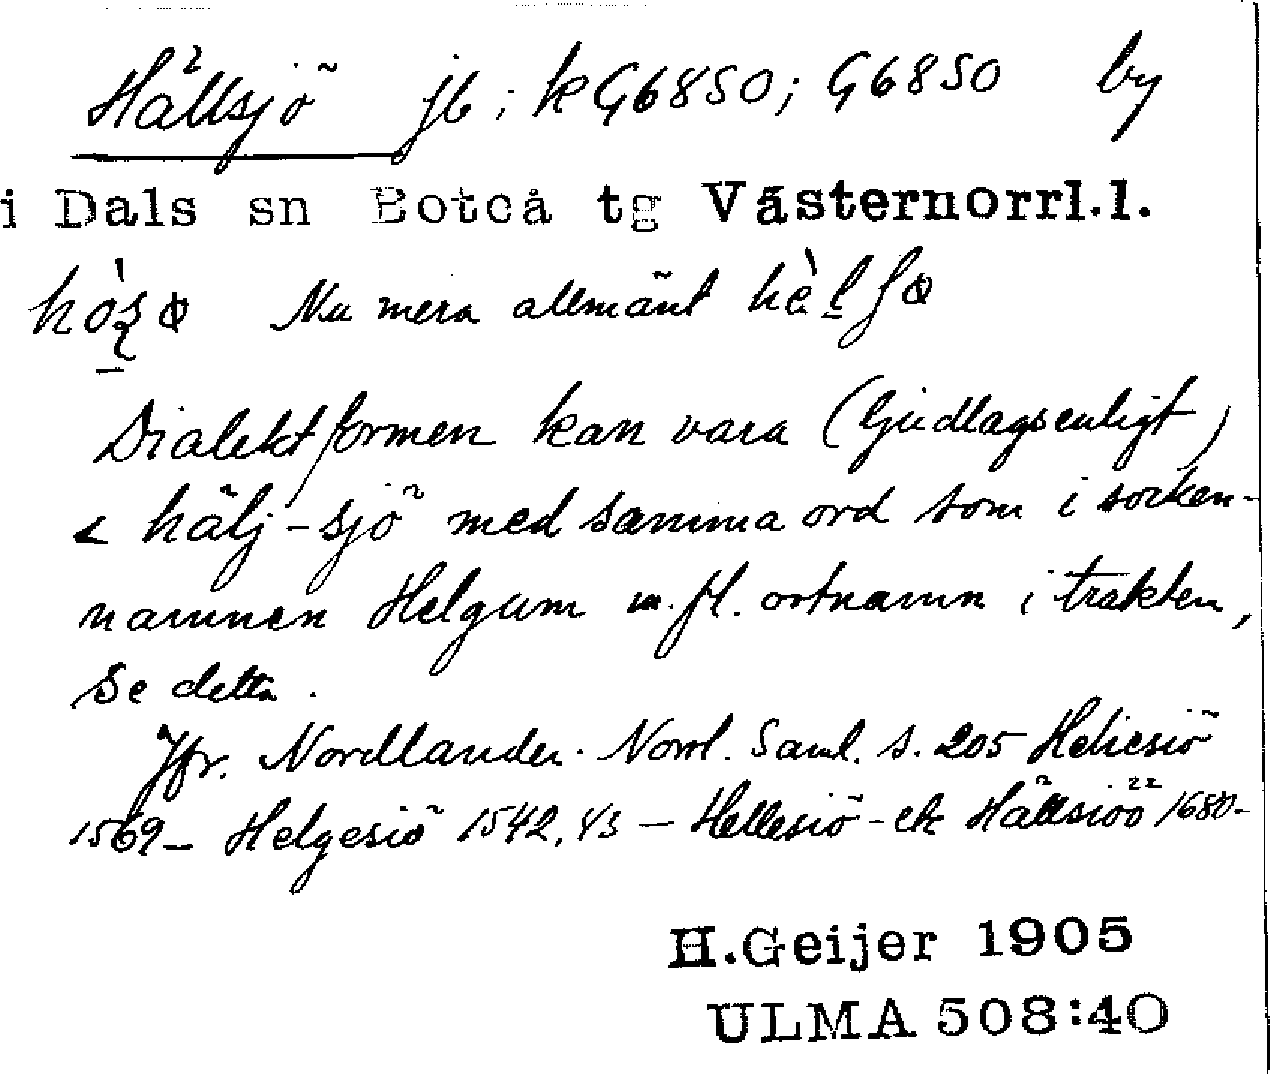 Hällsjö jb; kG6850; G6850 by
i Dals sn Boteå tg Västernorrl.l.
Nu mera allmänt
Dialektformen kan vara (ljudlagsenligt)
< hälj-sjö med samma ord som i socken-
namnen Helgum m.fl. ortnamn i trakten,
se detta.
Jfr. Nordlander. Norrl. Saml. s. 205 Heliesiö
1569 – Helgesiö 1542, 43 – Hellesiö - ek Hällsiöö 1680-
H.Geijer 1905
ULMA 508:40